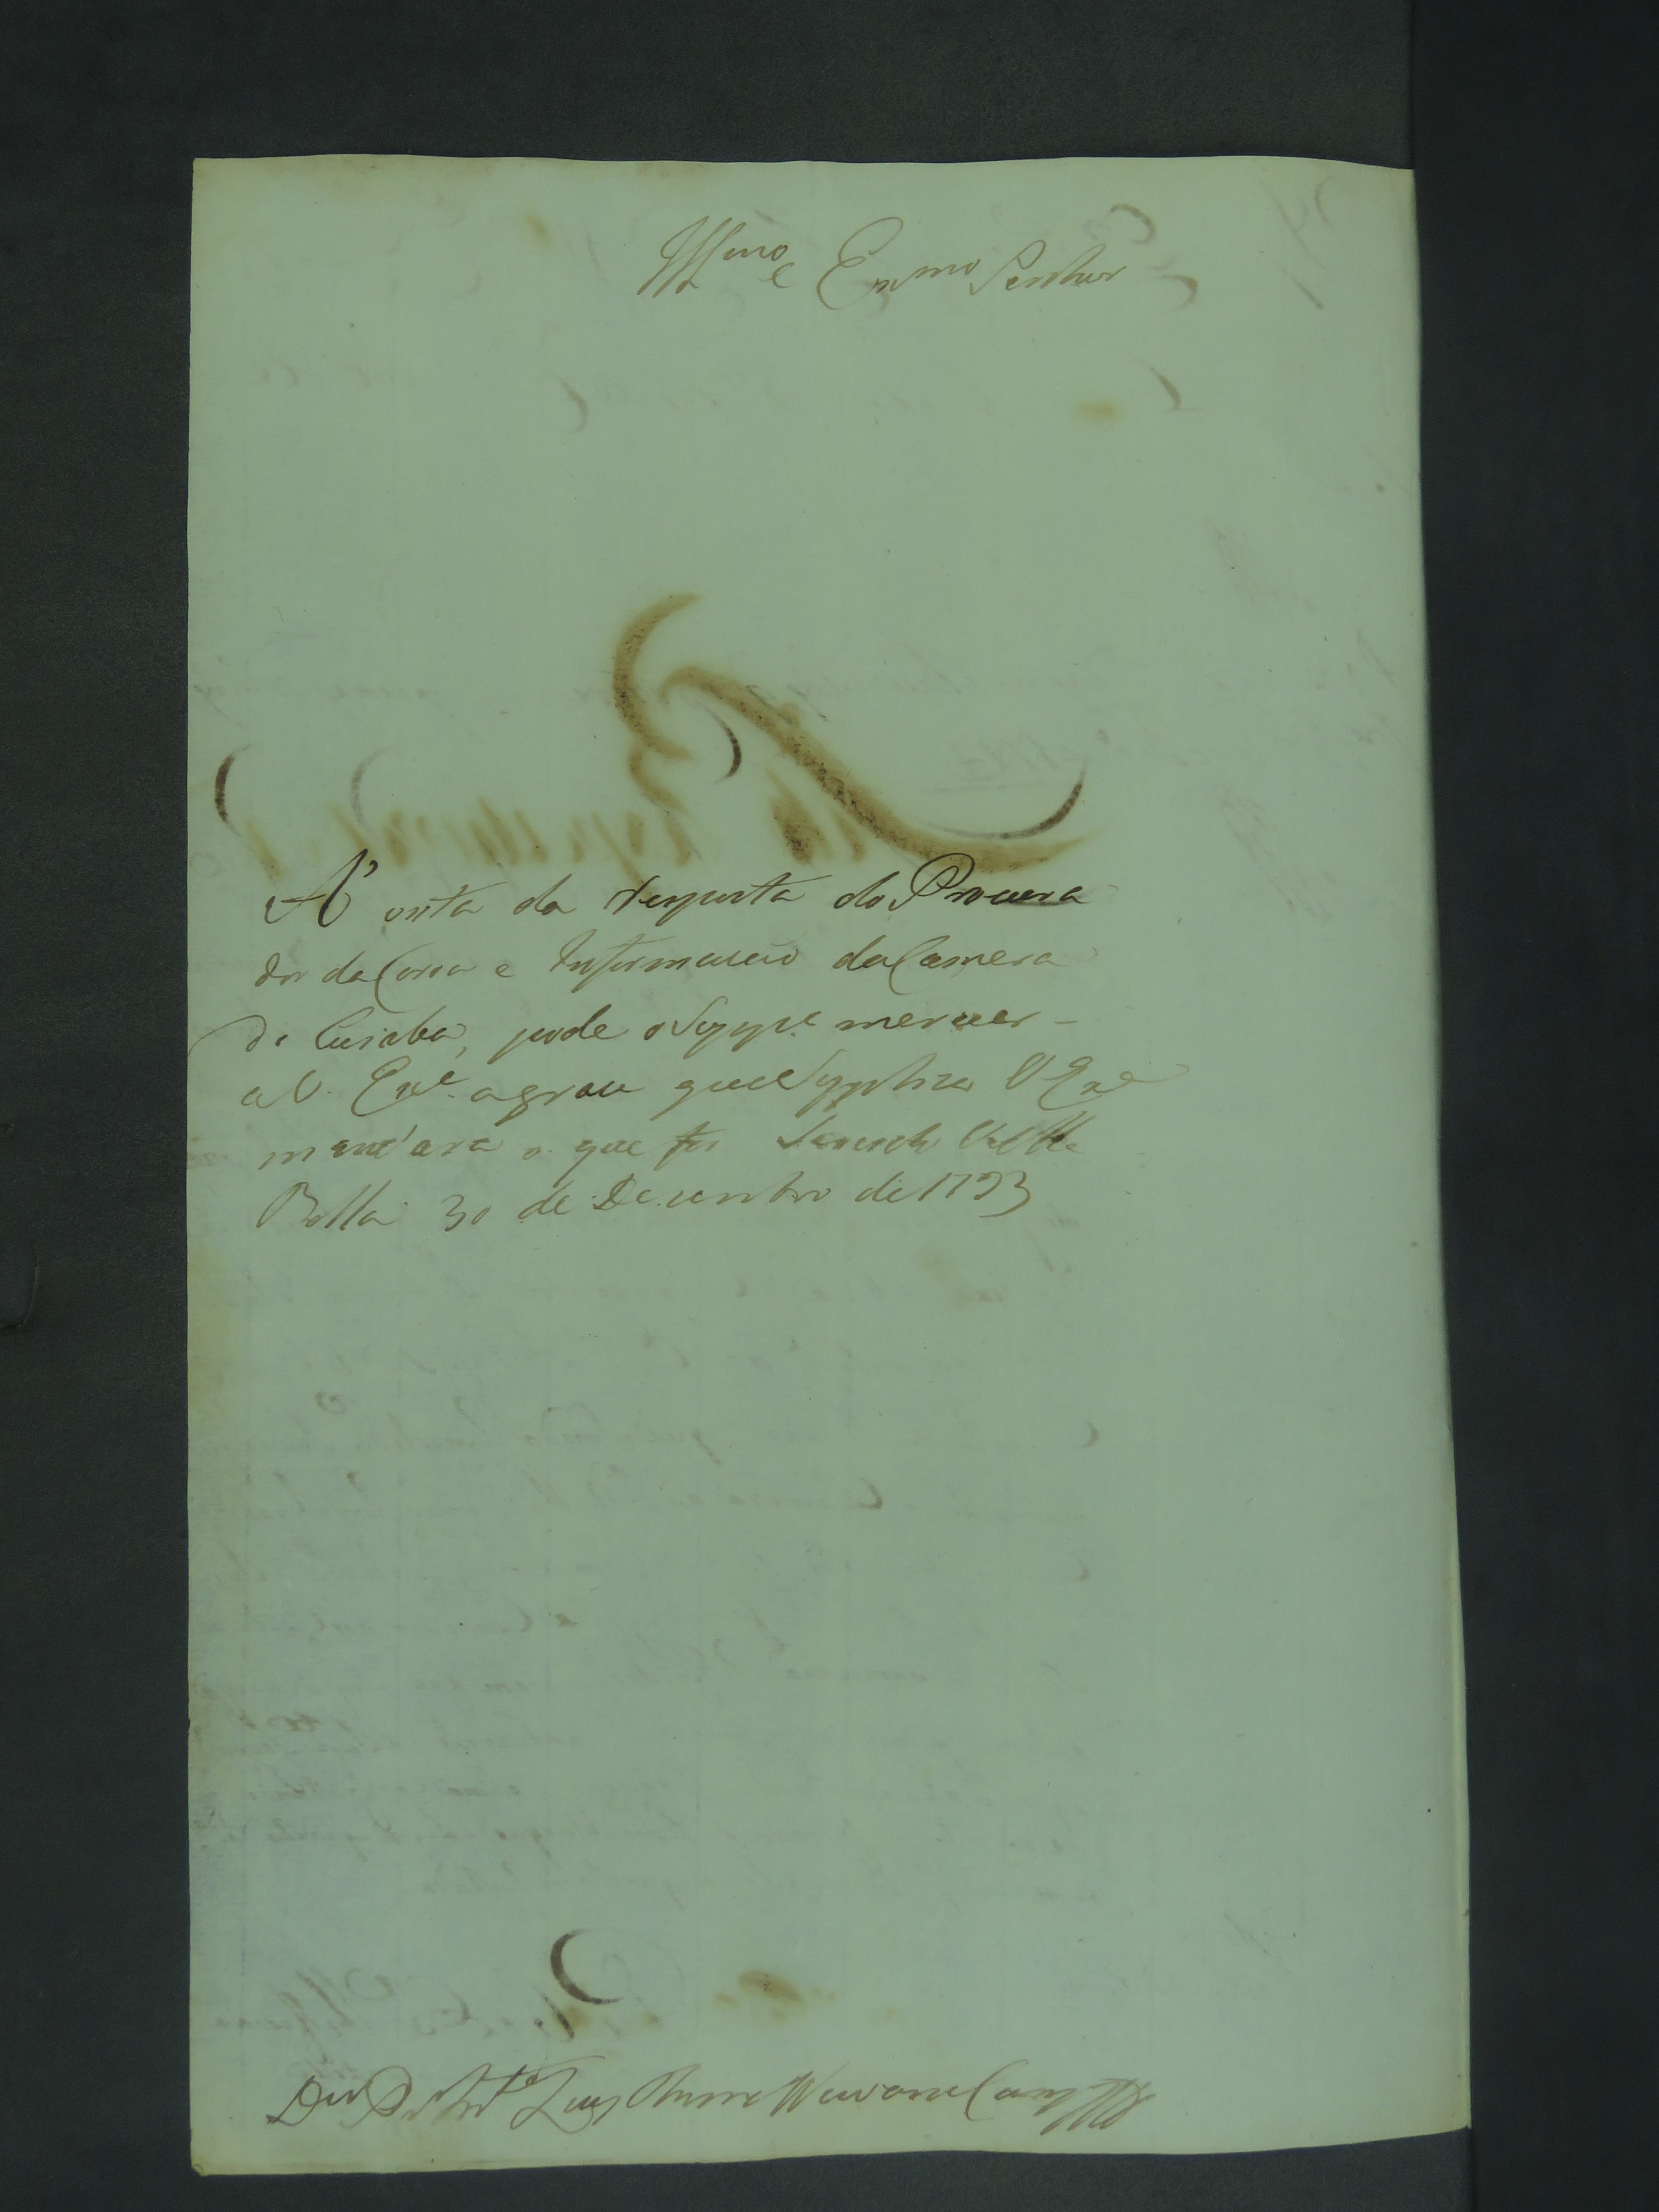 Illmo e Exmo Senhor
A' vista da Resposta do Procura
dor da Coroa e Informacaõ da Camera
do Cuiaba, pode o Suppe merecer
a V. Exe. a graça que Supplica V Exe
mandara o que for Servido Villa
Bella 30 de Dezembro de 1793
Luiz